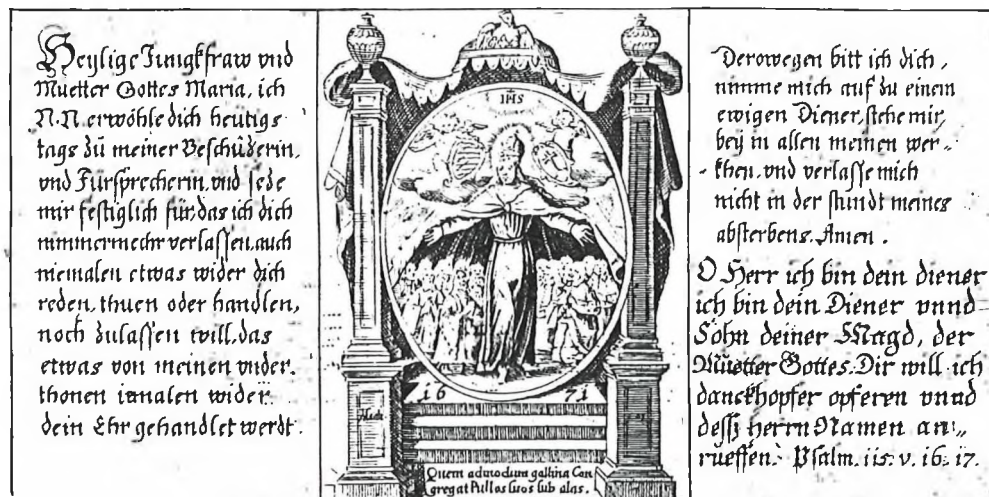 Heylige Jungkfraw vnd
Muetter Gottes Maria, ich
N.N erwöhle dich heutigs
tags zu meiner Beschüzerin,
vnd Fürsprecherin, vnd seze
mir festiglich für, das ich dich
nimmermehr verlassen, auch
niemalen etwas wider dich
reden, thuen oder handlen,
noch zulassen will, das
etwas von meinen vnder-
thonen iemalen wider
dein Ehr gehandlet werdt.
IHS
16 71
Quem admodum gallina Con
gregat Pullos suos sub alas.
Derowegen bitt ich dich,
nimme mich auf zu einem
ewigen Diener, stehe mir
bey in allen meinen wer-
khen, vnd verlasse mich
nicht in der stundt meines
absterbens. Amen.
O Herr ich bin dein diener
ich bin dein Diener vnnd
Sohn deiner Magd, der
Muetter Gottes. Dir will ich
danckhopfer opferen vnnd
dess herrn Namen an-
rueffen. Psalm. 115. v. 16. 17.